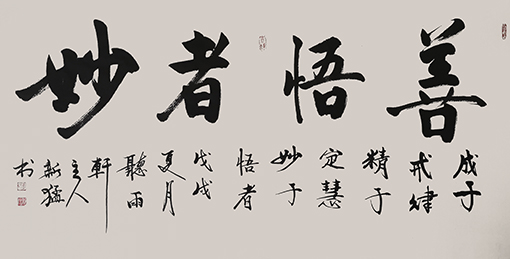 善悟者妙
成于
戒律
精于
定慧
妙于
悟者
戊戌
夏月
聽雨
軒
主人
新猛
书